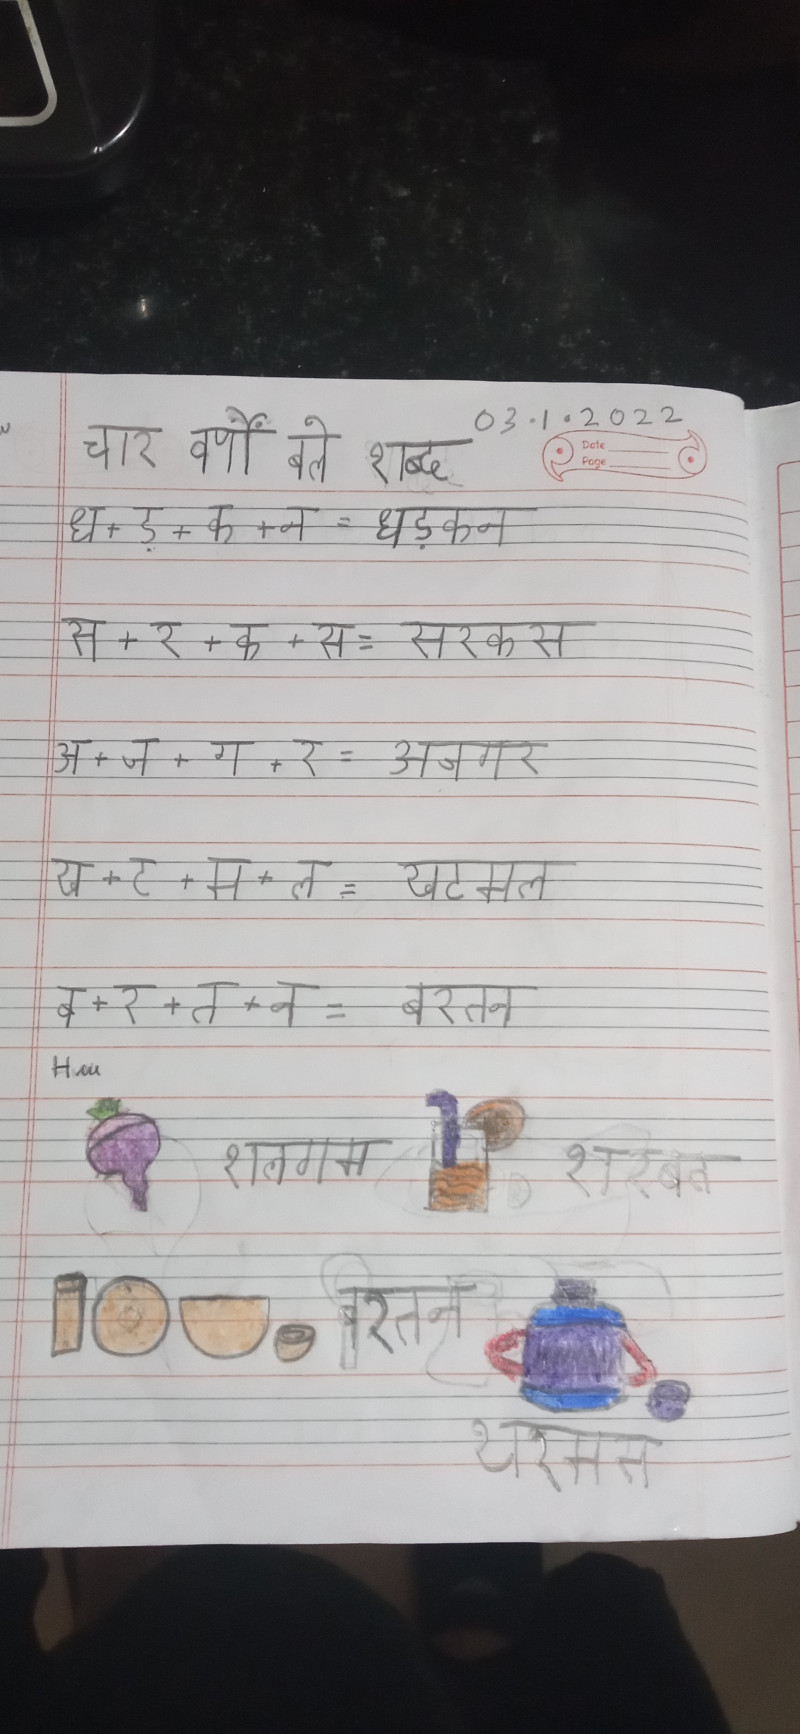 03.1.2022
चार वर्णों वले शब्द
Date
Page
ध + ड़ + क + न = धड़कन
स + र + क + स = सरकस
अ + ज + ग + र = अजगर
ख + ट + म + ल = खटमल
ब + र + त + न = बरतन
शलगम शरबत
बरतन
थरमस